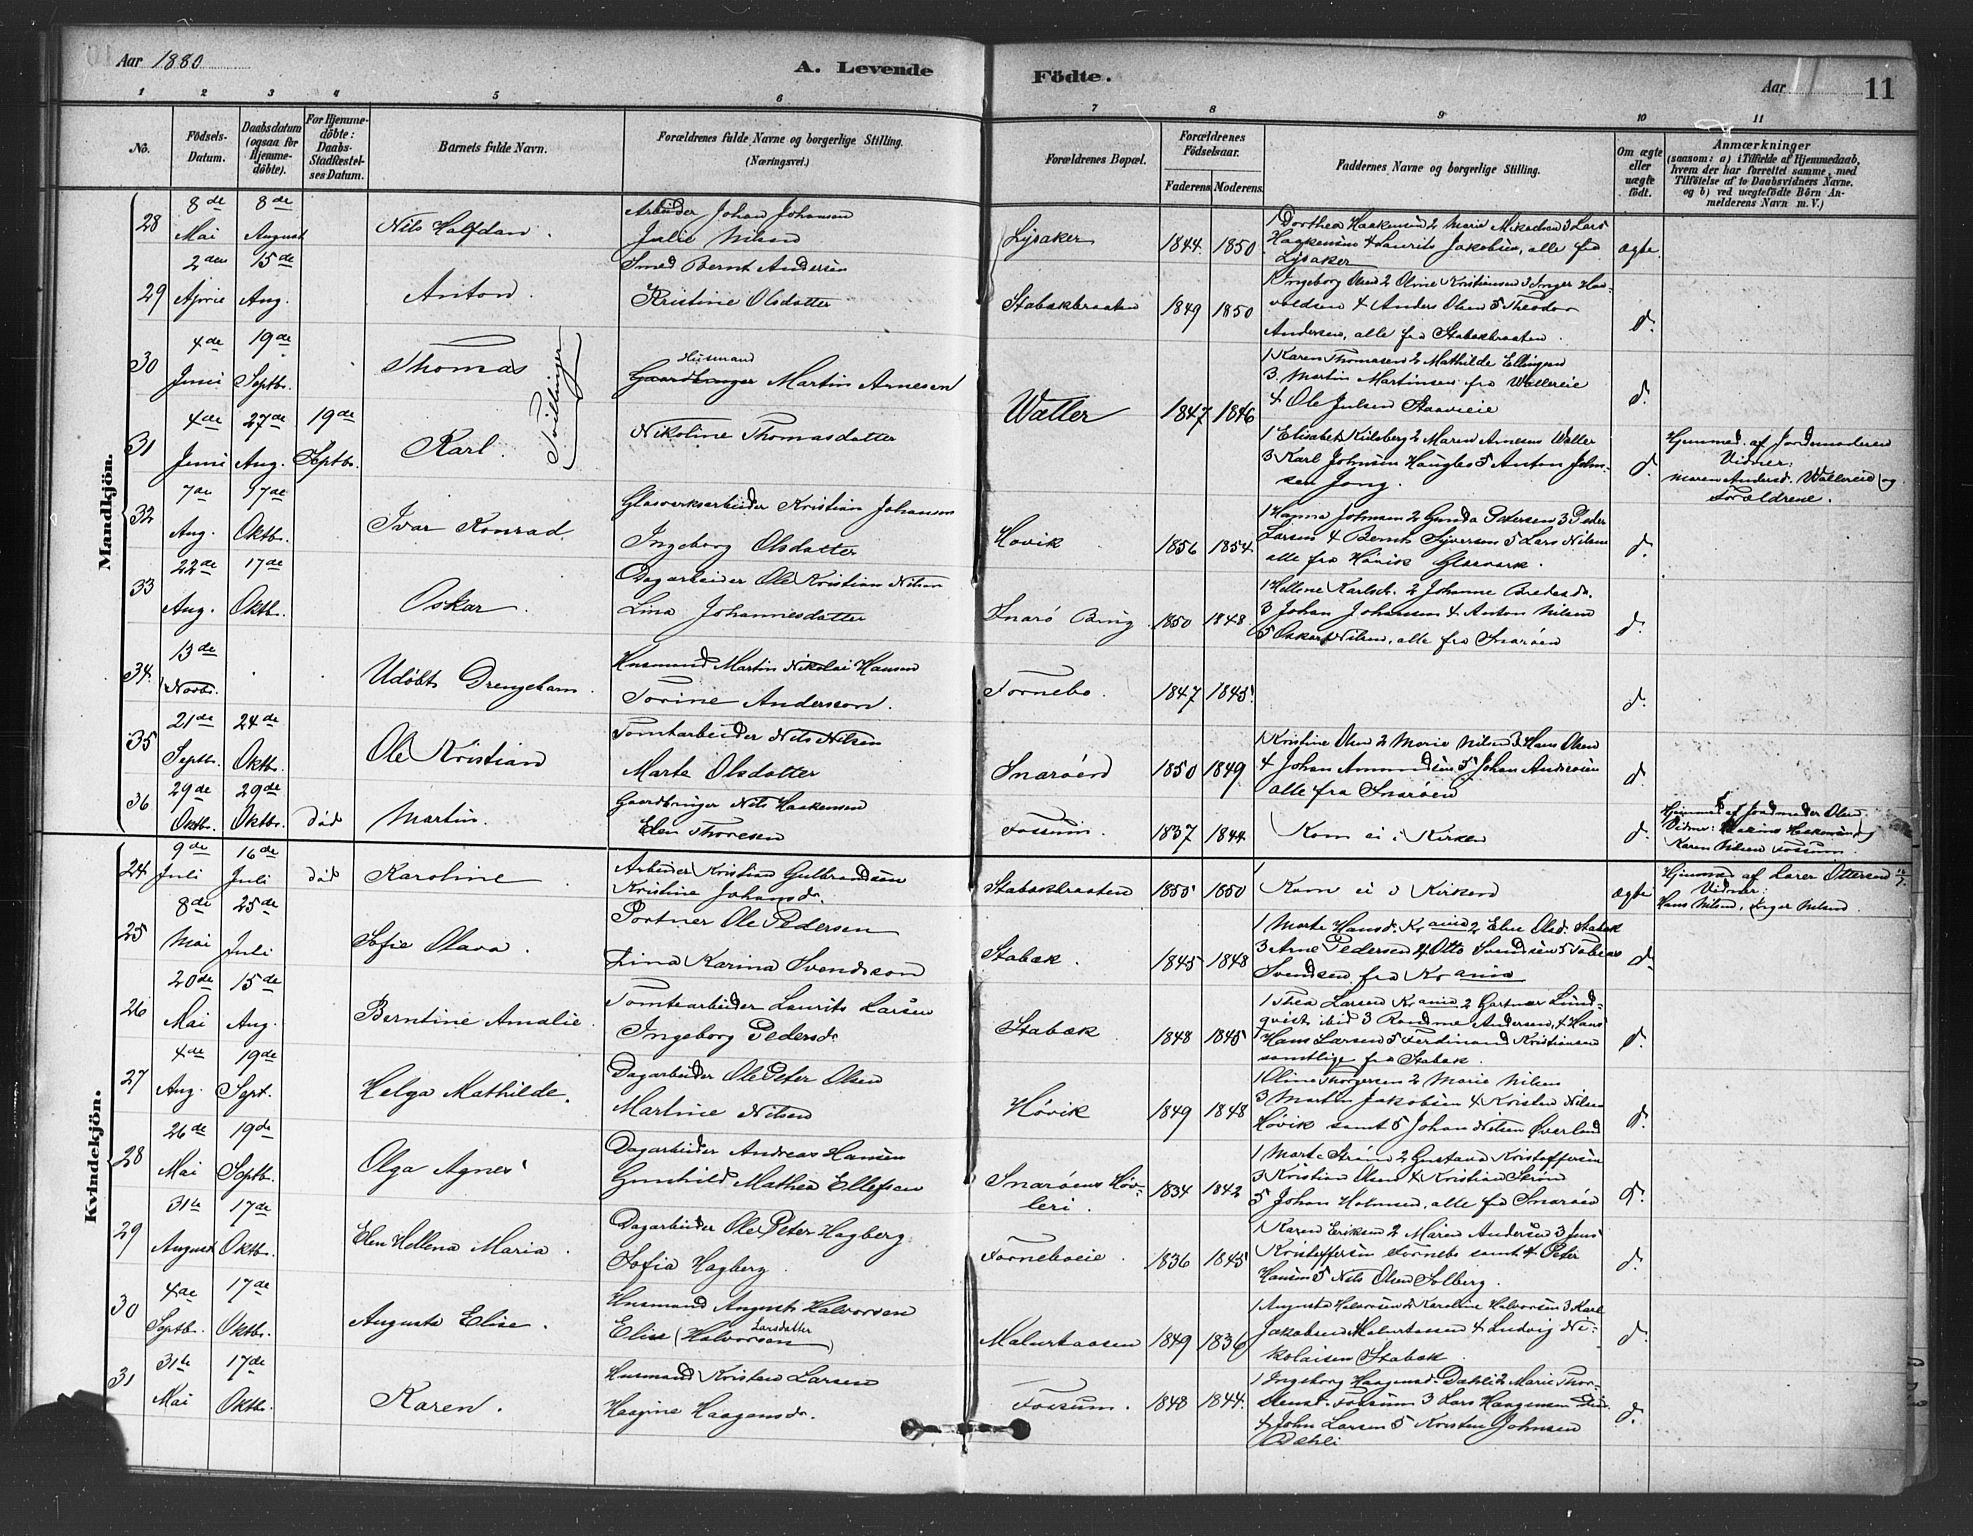 Aar 1880
A. Levende
Födte.
Aar
11
1 2 3 4 5 6 7 8 9 10 11
No.
Födsels-
Datum.
Daabsdatum
(ogsaa for
Hjemme-
döbte).
For Hjemme-
döbte:
Daabs-
Stadfæstel-
ses Datum.
Barnets fulde Navn.
Forældrenes fulde Navne og borgerlige Stilling.
(Næringsvei.)
Forældrenes Bopæl.
Forældrenes
Födselsaar.
Faderens. Moderens.
Faddernes Navne og borgerlige Stilling.
Om ægte
eller
uægte
födt.
Anmærkninger
(saasom: a) i Tilfælde af Hjemmedaab,
hvem der har forrettet samme, med
Tilföielse af to Daabsvidners Navne.
og b) ved uægtefödte Börn An-
melderens Navn m.V.)
Mandkjön.
28
8de Mai
8de August
Nils Halfdan.
Arbeider Johan Johansen
Julie Nilsen
Lysaker
1844. 1850.
1 Dorthea Haakensen 2 Marie Mikaelsen 3 Lars
Haakensen 4 Laurits Jakobsen, alle fra
Lysaker
ægte.
29
2den Aprie
15de Aug.
Anton.
Smed Bernt Andersen
Kristine Olsdatter
Stabækbraaten
1849 1850
1 Ingeborg Olsen 2 Oline Kristiansen 3 Inger Haa-
voldsen 4 Anders Olsen 5 Theodor
Andersen, alle fra Stabækbraaten.
d.
30
4de Juni
19de Septbr.
Thomas
Tvillinger
Husmand
Gaardbruger Martin Arnesen
Waller
1847 1846
1 Karen Thomasen 2 Mathilde Ellingsen
3. Martin Martinsen fra Wallereie
4 Ole Julsen Staavieie
d.
31
4de Juni
27de Aug.
19de Septbr.
Karl.
Nikoline Thomasdatter
1 Elisabet Kulsberg 2 Maren Arnesen Waller
3 Karl Johnsen Haugles 5 Anton John-
sen Jong.
d.
Hjemmed. af Jordemoderen
Vidner:
Maren Andersd. Wallereie og
Forældrene.
32
7de Aug.
17de Oktbr.
Ivar Konrad
Glasverksarbeider Kristian Johansen
Ingeborg Olsdatter
Høvik
1856 1854.
1 Hanna Johnsen 2 Gunda Pedersen 3 Peder
Larsen 4 Bernt Syversen 5 Lars Nilsen
alle fra Høvik Glasverk.
d.
33
22de Aug.
17de Oktbr.
Oskar.
Dagarbeider Ole Kristian Nilsen
Lina Johannesdatter
Snarø Brug
1850 1848.
1 Hellene Karlsd. 2 Johanne Bredesd.
3 Johan Johansen 4 Anton Nilsen
5 Oskar Nilsen, alle fra Snarøen
d.
34.
13de Novbr.
Udøbt Drengebarn.
Husmand Martin Nikolai Hansen
Torine Andersson.
Fornebo.
1847 1845.
d.
35
21de Septbr.
24de Oktbr.
Ole Kristian
Tomtarbeider Nils Nilsen
Marte Olsdatter
Snarøen
1850 1849.
1 Kristine Olsen 2 Marie Nilsen 3 Hans Olsen
4 Johan Amundsen 5 Johan Andersen
alle fra Snarøen
d.
36
29de Oktbr.
29de Oktbr.
død
Martin.
Gaardbruger Nils Haakensen
Elen Thoresen
Fossum.
1837 1844.
Kom ei i Kirken
d.
Hjemmed. af Jordmoder Olsen
Vidner: Marius Haakensen og
Karen Nilsen Fossum.
Kvindekjön.
24
9de Juli
16de Juli
død
Karoline
Arbeider Kristian Gulbrandsen
Kristine Johansd.
Stabækbraaten
1855 1850
Kom ei i Kirken
ægte
Hjemmed af Lærer Ottersen
Vidner:
Hans Nilsen, Inger Nilsen.
25
8de Mai
25de Juli
Sofie Olava.
Portner Ole Pedersen
Lina Karina Svendsson
Stabæk.
1845 1848
1 Marte Hansd. Kr.ania 2 Elen Olsd. Stabæk
3 Arne Pedersen 4 Otto Svendsen 5 Tobias
Svendsen fra Kr.ania
d.
26
20de Mai
15de Aug.
Berntine Amalie.
Tomtearbeider Laurits Larsen
Ingeborg Pedersd.
Stabæk
1848 1845
1 Thea Larsen Kr.ania 2 Gartner Lund-
qvist ibid 3 Randine Andersen, 4 Hans
Hans Larsen 5 Ferdinand Kristiansen
samtlige fra Stabæk.
d.
27
4de Aug.
19de Sept.
Helga Mathilde.
Dagarbeider Ole Peter Olsen
Martine Nilsen
Høvik
1849 1848
1 Oline Thorgersen 2 Marie Nilsen
3 Martin Jakobsen 4 Kristen Nilsen
Høvik samt 5 Johan Nilsen Øverland
d.
28
26de Mai
19de Septbr.
Olga Agnes
Dagarbeider Andreas Hansen
Gunhild Mathea Ellefsen
Snarøens Høv-
leri.
1834 1842
1 Marte Strøm 2 Gustava Kristoffersen
3 Kristian Olsen 4 Kristian Strøm
5 Johan Holmsen, alle fra Snarøen
d.
29
31te August
17de Oktbr.
Elen Hellena Maria.
Dagarbeider Ole Peter Hagberg
Sofia Hagberg.
Forneboeie.
1836 1845
1 Karen Eriksen 2 Maren Andersen 3 Jens
Kristoffersen Fornebo samt 4 Peter
Hansen 5 Nils Olsen Solberg.
d.
30
4de Septbr.
17de Oktbr.
Augusta Elise.
Husmand August Halvorsen
Larsdatter
Elise (Halvorsen)
Malurtaasen
1849 1836
1 Augusta Halvorsen 2 Karoline Halvorsen 3 Karl
Jakobsen Malurtaasen 4 Ludvig Ni-
kolaisen Stabæk.
d.
31
31te Mai
17de Oktbr.
Karen.
Husmand Kristen Larsen
Haagine Haagensd.
Fossum.
1848 1844.
1 Ingeborg Haagensd. Dahli 2 Marie Thor-
stensd. Fossum 3 Lars Haagensen
4 John Larsen 5 Kristen Johnsen
Dæhli
d.